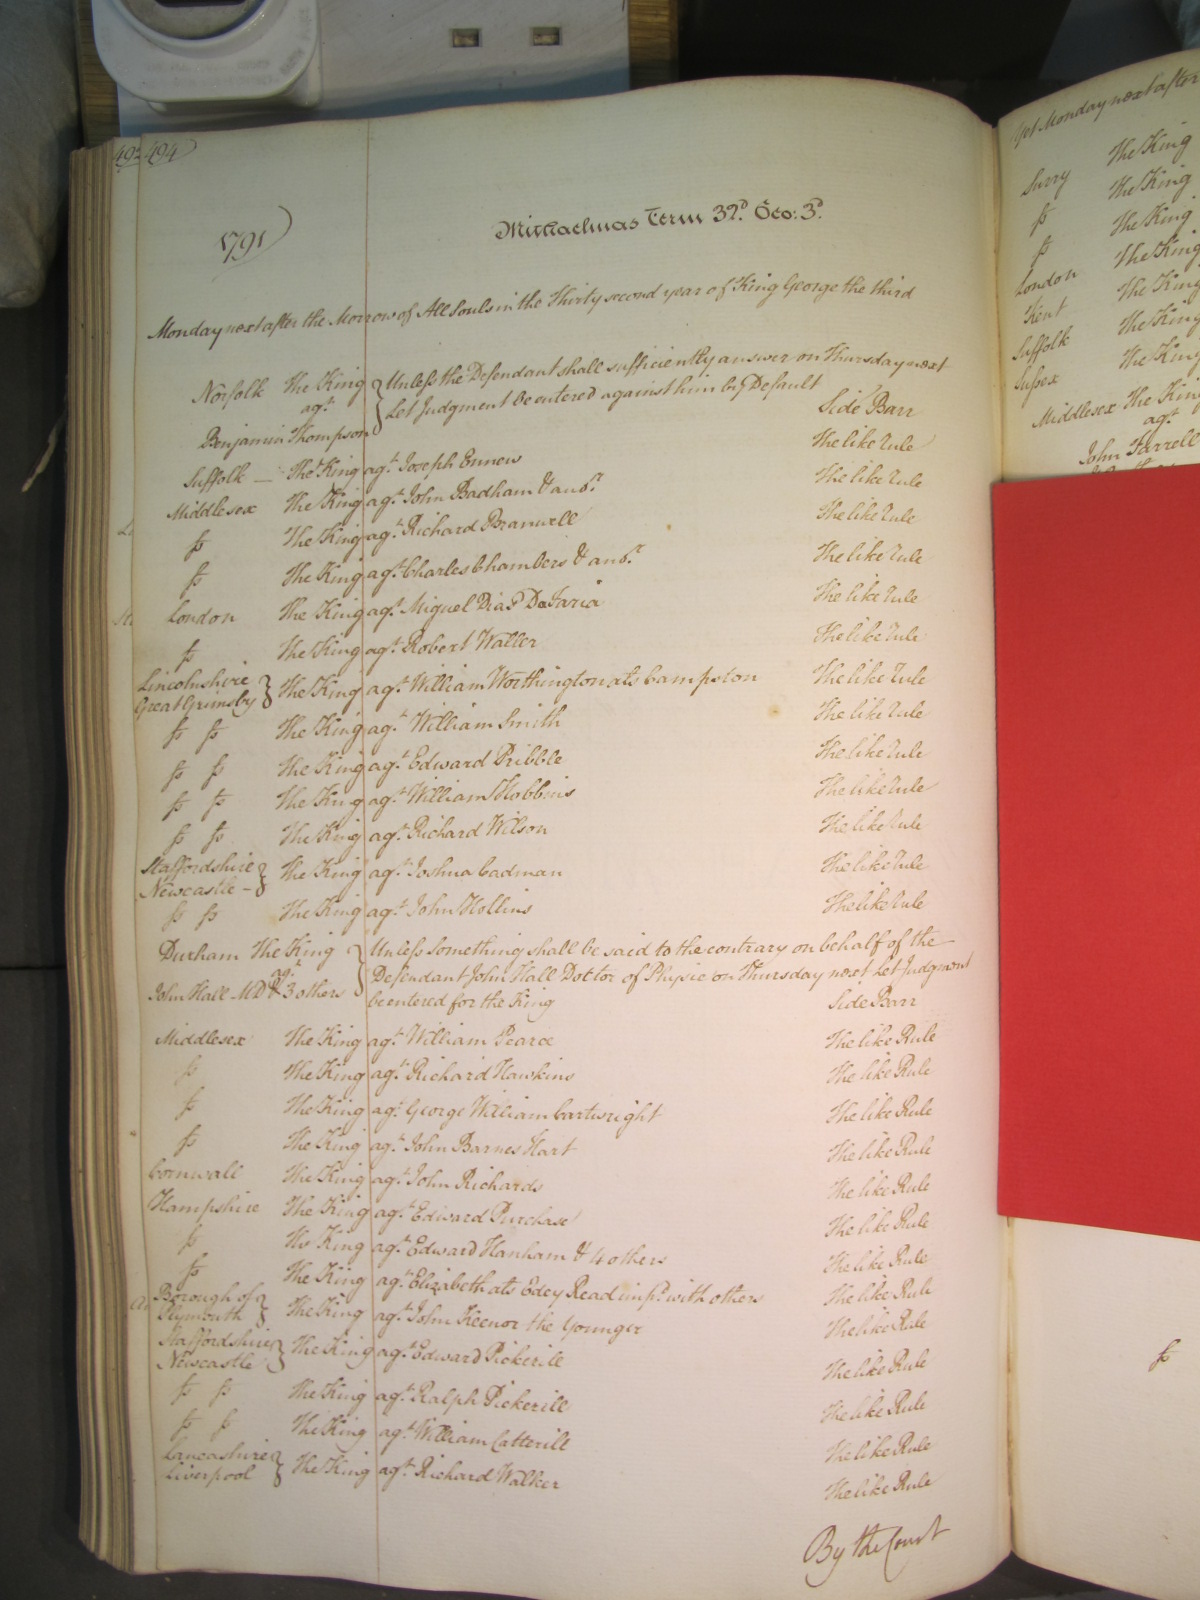 494
1791
Michaelmas Term 32d. Geo: 3d.
Monday next after the Morrow of All Souls in the Thirty second year of King George the third
Norfolk The King agt. Benjamin Thompson } Unless the Defendant shall sufficiently answer on Thursday next
Let Judgment be entered against him by Default
Side Barr
Suffolk — The King agt. Joseph Ennew The like rule
Middlesex The King agt. John Badham & anor. The like rule
fs The King agt. Richard Bramwell The like rule
fs The King agt. Charles Chambers & anor. The like rule
London The King agt. Miguel Dias DaFaria The like rule
fs The King agt. Robert Waller The like rule
Lincolnshire Great Grimsby } The King agt. William Worthington ats Campston The like rule
fs fs The King agt. William Smith The like rule
fs fs The King agt. Edward Pribble The like rule
fs fs The King agt. William Hobbins The like rule
fs fs The King agt. Richard Wilson The like rule
Staffordshire Newcastle – } The King agt. Joshua Cadman The like rule
fs fs The King agt. John Hollins The like rule
Durham The King agt. John Hall MD & 3 others } Unless something shall be said to the contrary on behalf of the
Defendant John Hall Doctor of Physic on Thursday next Let Judgment
be entered for the King Side Barr
Middlesex The King agt. William Pearce The like Rule
fs The King agt. Richard Hawkins The like Rule
fs The King agt. George William Cartwright The like Rule
fs The King agt. John Barnes Hart The like Rule
Cornwall The King agt. John Richards The like Rule
Hampshire The King agt. Edward Purchase The like Rule
fs The King agt. Edward Hanham & 4 others The like Rule
fs The King agt. Elizabeth ats Edey Read impd. with others The like Rule
Borough of Plymouth } The King agt. John Keenor the Younger The like Rule
Staffordshire Newcastle } The King agt. Edward Pickerill The like Rule
fs fs The King agt. Ralph Pickerill The like Rule
fs fs The King agt. William Catterill The like Rule
Lancashire Liverpool } The King agt. Richard Walker The like Rule
By the Court
Monday next after
Surry The King
fs The King
fs The King
London The King
Kent The King
Suffolk The King
Sussex The King
Middlesex The King
agt.
John Farrell
fs